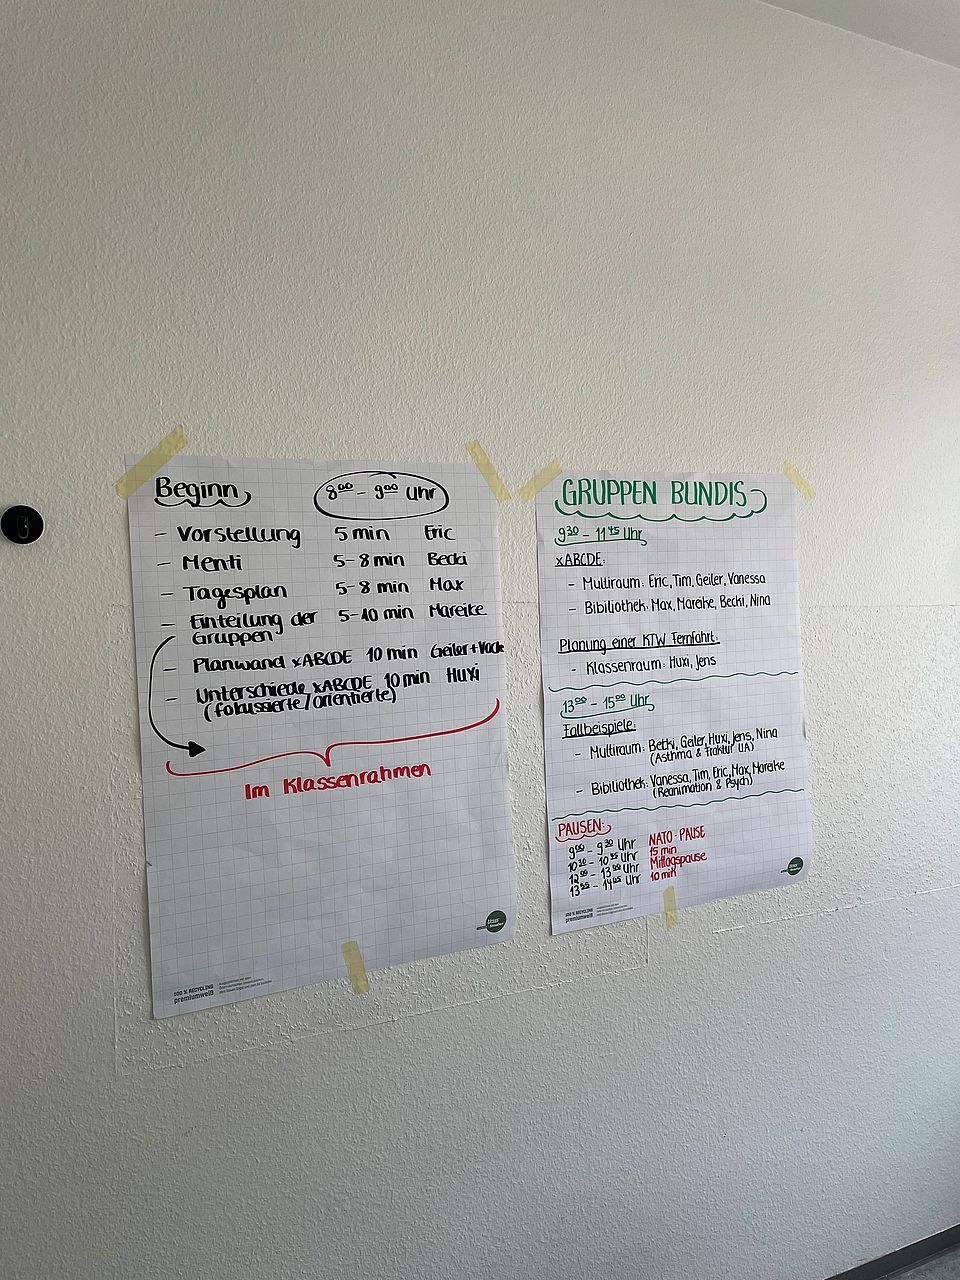 Beginn 8⁰⁰ - 9⁰⁰ Uhr
- Vorstellung 5 min Eric
- Menti 5-8 min Becki
- Tagesplan 5-8 min Max
- Einteilung der 5-10 min Mareike
Gruppen
- Planwand xABCDE 10 min Geiler+
- Unterschiede xABCDE 10 min Huxi
(fokussierte/orientierte)
Im Klassenrahmen
100 % RECYCLING
premiumweiß
GRUPPEN BUNDIS
9³⁰ - 11⁴⁵ Uhr
xABCDE:
- Multiraum: Eric, Tim, Geiler, Vanessa
- Bibiliothek: Max, Mareike, Becki, Nina
Planung einer KTW Fernfahrt:
- Klassenraum: Huxi, Jens
13⁰⁰ - 15⁰⁰ Uhr
Fallbeispiele:
- Multiraum: Becki, Geiler, Huxi, Jens, Nina
(Asthma & Fraktur UA)
- Bibiliothek: Vanessa, Tim, Eric, Max, Mareike
(Reanimation & Psych)
PAUSEN:
9⁰⁰ - 9³⁰ Uhr NATO-PAUSE
10³⁰ - 10⁴⁵ Uhr 15 min
12⁰⁰ - 13⁰⁰ Uhr Mittagspause
13⁵⁵ - 14⁰⁵ Uhr 10 min
100 % RECYCLING
premiumweiß